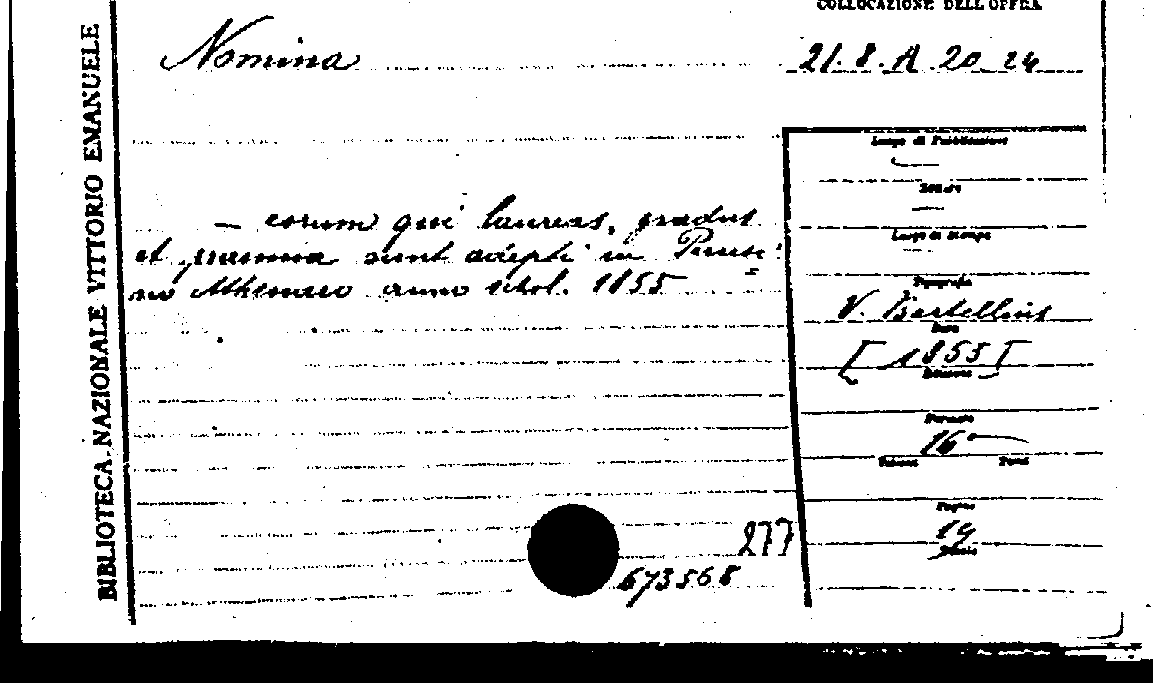 COLLOCAZIONE DELL'OPERA
Nomina
21. 8. A 20 24
BIBLIOTECA NAZIONALE VITTORIO EMANUELE
Luogo di Pubblicazione
— eorum qui laureas, gradus
et praemia sunt adepti in
Athenaeo anno schol. 1855
Editore
Luogo di Stampa
Tipografia
V. Bartellini
Data
[1855]
Edizione
Formato
16°
Volumi Tomi
Pagine
19
277
673568